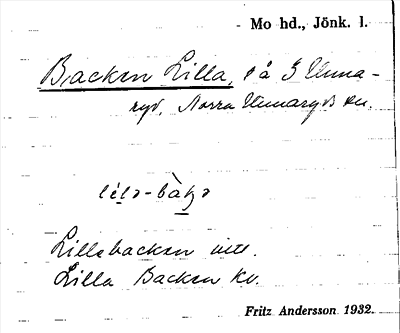 Mo hd., Jönk. l.
Backen Lilla, på S Unna-
ryd, Norra Unnaryds sn.
Lillebacken
Lilla Backen kv.
Fritz Andersson 1932.